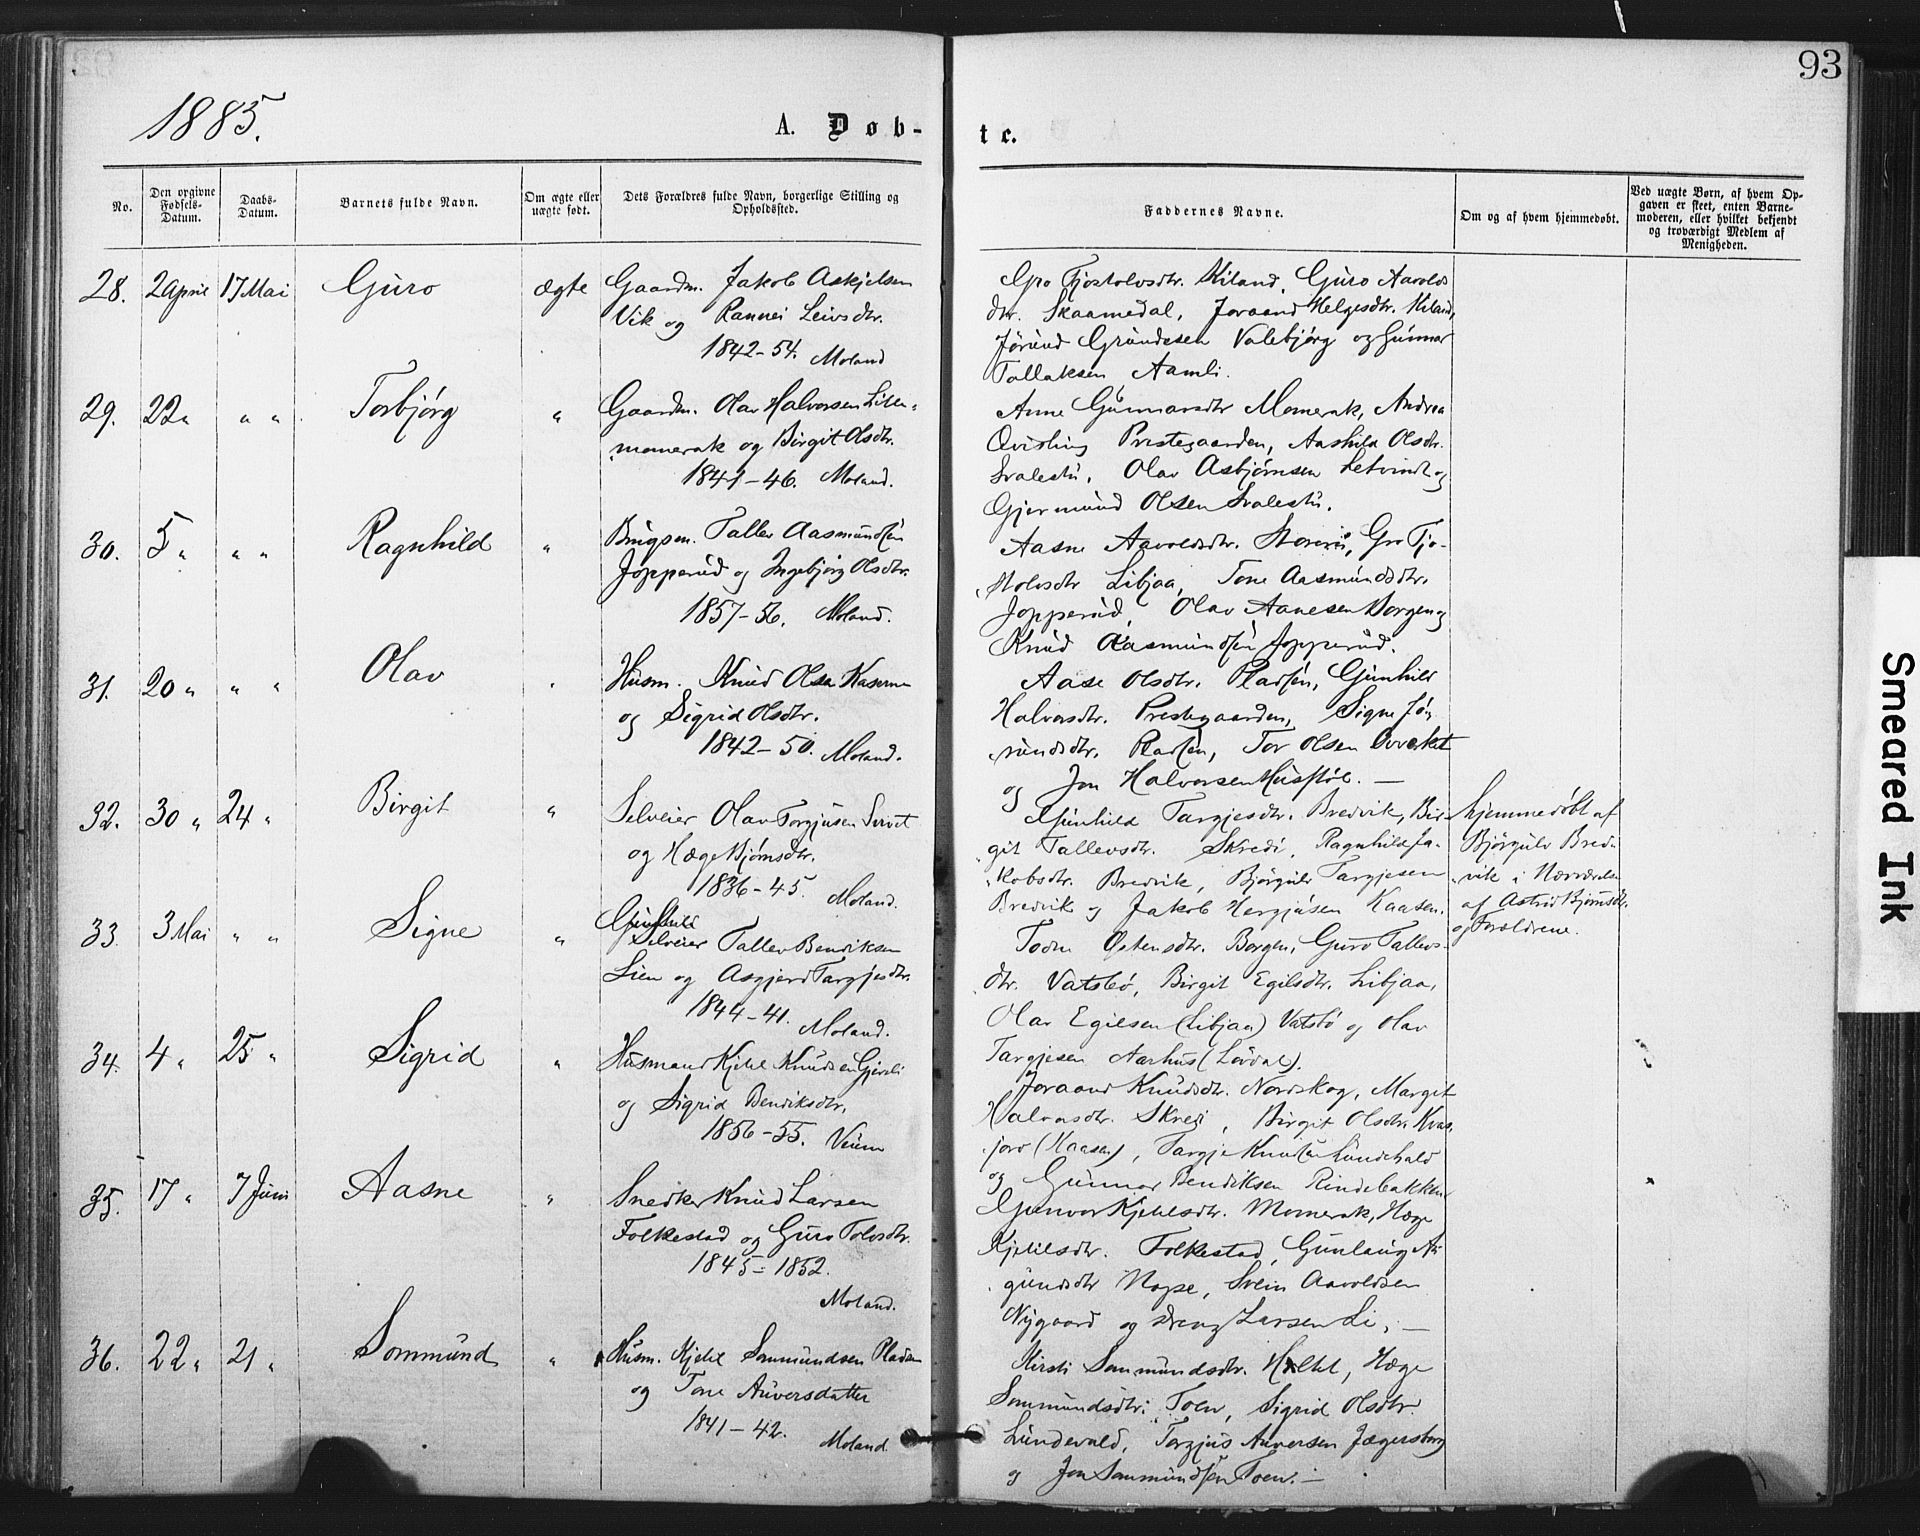 93
1885.
A. Døb-
te.
No.
Den opgivne Fødsels-Datum.
Daabs-Datum.
Barnets fulde Navn.
Om ægte eller uægte født.
Dets Forældres fulde Navn, borgerlige Stilling og Opholdssted.
Faddernes Navne.
Om og af hvem hjemmedøbt.
Ved uægte Børn, af hvem Opgaven er skeet, enten Barnemoderen, eller hvilket bekjendt og troværdigt Medlem af Menigheden.
28. 2 April 17 Mai Guro ægte Gaardm. Jakob Askjelsen
Vik og Rannei Leivsdtr.
1842-54. Moland
Gro Fjostolvsdtr. Kiland, Guro Aavolds
dtr. Skaamedal, Joraand Helgesdtr. Kiland,
Jørund Grundesen Valebjørg og Gunnar
Tallaksen Aamli.
29. 22 " " " Torbjørg " Gaardm. Olav Halvorsen Litle-
momrak og Birgit Olsdtr.
1841-46. Moland.
Anne Gunnarsdtr Momrak, Andrea
Qvisling Prestegaarden, Aashild Olsdtr.
Svalestu, Olav Asbjørnsen og
Gjermund Olsen Svalestu.
30. 5 " " " Ragnhild " Brugsm. Tallev Aasmundsen
Jopperud og Ingebjørg Olsdtr.
1857-56. Moland.
Aasne Aavoldsdtr. Gro Fjo-
stolvsdtr Libjaa, Tone Aasmundsdtr.
Jopperud, Olav Aanesen Borgen og
Knud Aasmundsen Jopperud.
31. 20 " " " Olav " Husm. Knud Olsen Kaserne
og Sigrid Olsdtr.
1842-50. Moland.
Aase Olsdtr. Pladsen, Gunhild
Halvorsdtr. Prestegaarden, Signe Jø-
rundsdtr. Pladsen, Tor Olsen
og Jon Halvorsen Husstøl. —
32. 30 " 24 " Birgit " Selveier Olav Torgjusen
og Hæge Bjørnsdtr.
1836-45. Moland.
Gunhild Targjesdtr. Bredvik, Bir-
git Tallevsdtr. Skredi, Ragnhild Ja-
kobsdtr. Bredvik, Bjørgulv Targjesen
Bredvik og Jakob Hergjusen Kaasen.
hjemmedøbt af
Bjørgulv Bred-
vik i Nærværelse
af Astrid Bjørnsdtr.
og Forældrene.
33. 3 Mai " " Signe " Selveier Tallev Bendiksen
Lien og Asgjerd Targjesdtr.
1844-41. Moland.
Todne Østensdtr. Borgen, Guro Tallevs-
dtr. Vatsbø, Birgit Egilsdtr. Libjaa,
Olav Egilsen (Libjaa) Vatsbø og Olav
Targjesen Aarhus (Løvdal).
34. 4 " 25 " Sigrid " Husmand Kjetil Knudsen
og Sigrid Bendiksdtr.
1856-55. Veum
Joraand Knudsdtr. Nordskog, Margit
Halvorsdtr. Skredi, Birgit Olsdtr. Kvas-
jord (Kaasen), Targje Knutsen Lundevald
og Gunnar Bendiksen Rindebakken
35. 17 " 7 Juni Aasne " Snedker Knud Larsen
Folkestad og Guro Tolvsdtr.
1845-1852.
Moland.
Gunvor Kjetilsdtr. Momrak, Hæge
Kjetilsdtr. Folkestad, Gunlaug Au-
gundsdtr Nape, Svein Aavoldsen
Nygaard og Dreng Larsen Li, —
36. 22 " 21 " Sommund " Husm. Kjetil Sommundsen Pladsen
og Tone Anversdatter
1841-42.
Moland
Kirsti Sommundsdtr. Haltet, Hæge
Sommundsdtr. Toen, Sigrid Olsdtr.
Lundevald, Torgjus Anversen Jægersborg
og Jon Sommundsen Toen. —
Smeared Ink